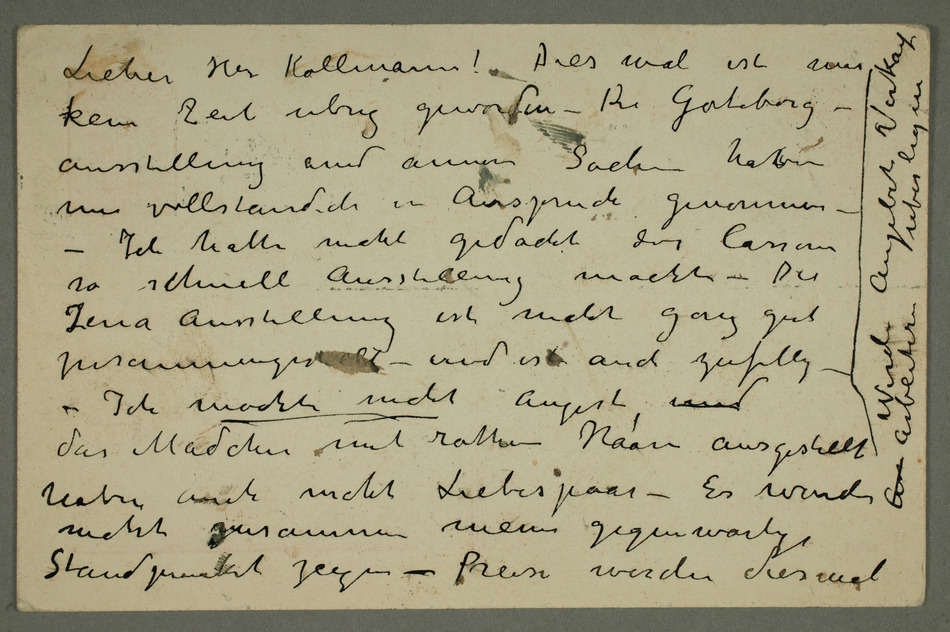 Lieber Her Kollmann! Dies mal ist mir
kein Zeit ubrig geworden – Die Gøteborg –
ausstellung und annen Sachen haben
mir vollstandich in Ansprude genommen –
– Ich hatte nicht gedacht das Cassirer
so schnell Ausstellung machte – Die
Jena Ausstellung ist nicht gans gut
zusammengestellt – und ist auch zufellig –
– Ich mochte nicht Angest, und
das Mädchen mit rothen Háare ausgestellt
haben auch nicht Liebespaar – Es wurde
nicht zusammen meine gegenwartige
Standpunkt zeigen – Preise werden diesmal
Werde Angebote Verkauf
Arbeiten uberlegen